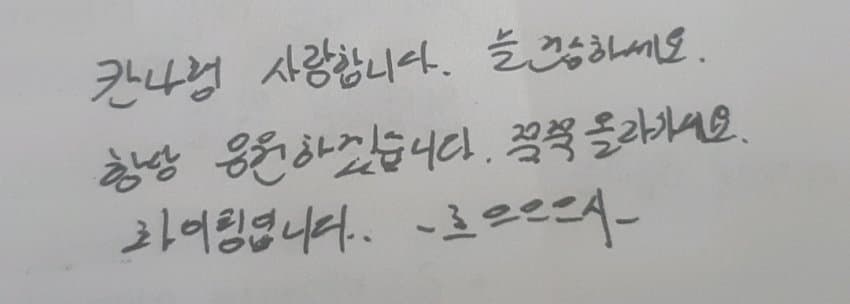 칸나렁 사랑합니다. 늘 건승하세요.
항상 응원하겠습니다. 쭉쭉 올라가세요.
화이팅입니다.. -르으으으시-